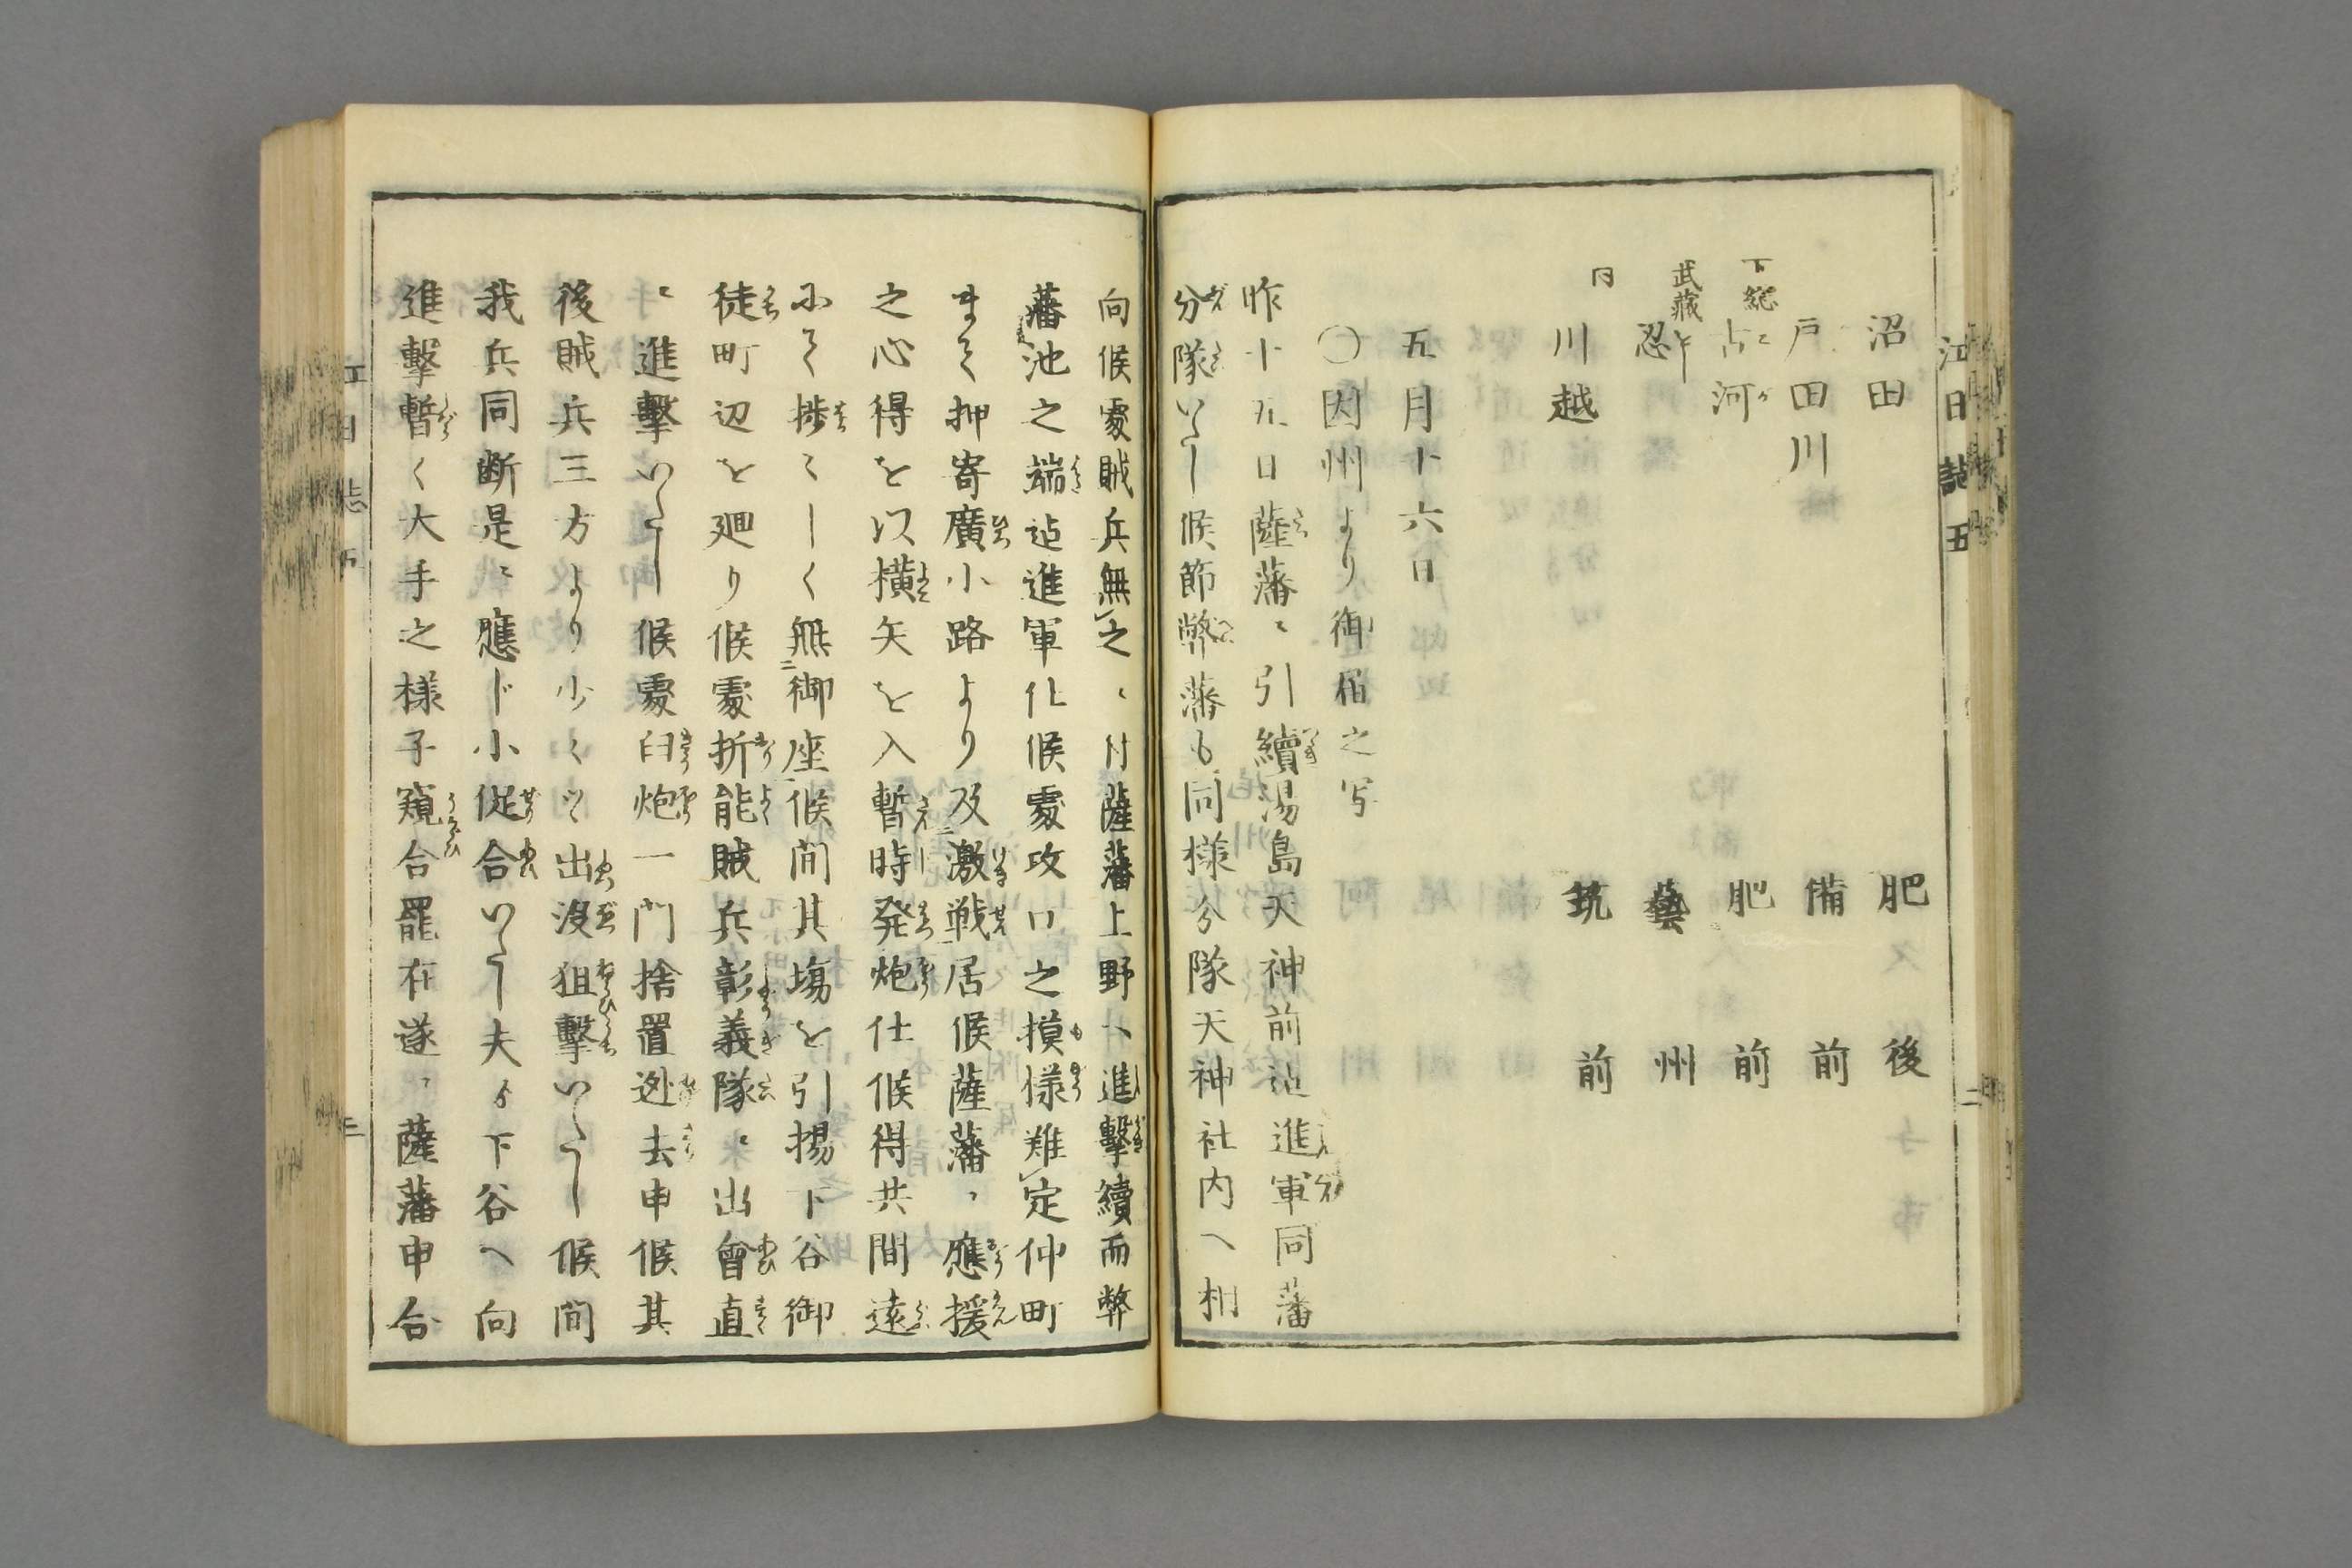 江日誌五
沼田 肥後
戸田川 備前
下総 古河 肥前
武蔵 忍 藝州
同 川越 筑前
五月十六日
〇因州より御届之写
昨十五日薩藩ニ引續湯島天神前迠進軍同藩
分隊いたし候節弊藩も同様分隊天神社内へ相
向候處賊兵無之ニ付薩藩上野へ進撃續而弊
藩池之端迠進軍仕候處攻口之摸様難定仲町
まて押寄廣小路より及激戦居候薩藩ニ應援
之心得を以横矢を入暫時発炮仕候得共間遠
にて捗々しく無御座候間其場を引揚下谷御
徒町辺を廻り候處折能賊兵彰義隊ニ出會直
ニ進撃いたし候處臼炮一門捨置迯去申候其
後賊兵三方より少しく出没狙撃いたし候間
我兵同断是ニ應ド小促合いたし夫ゟ下谷へ向
進撃暫く大手之様子窺合罷在遂ニ薩藩申合
江日誌五 三